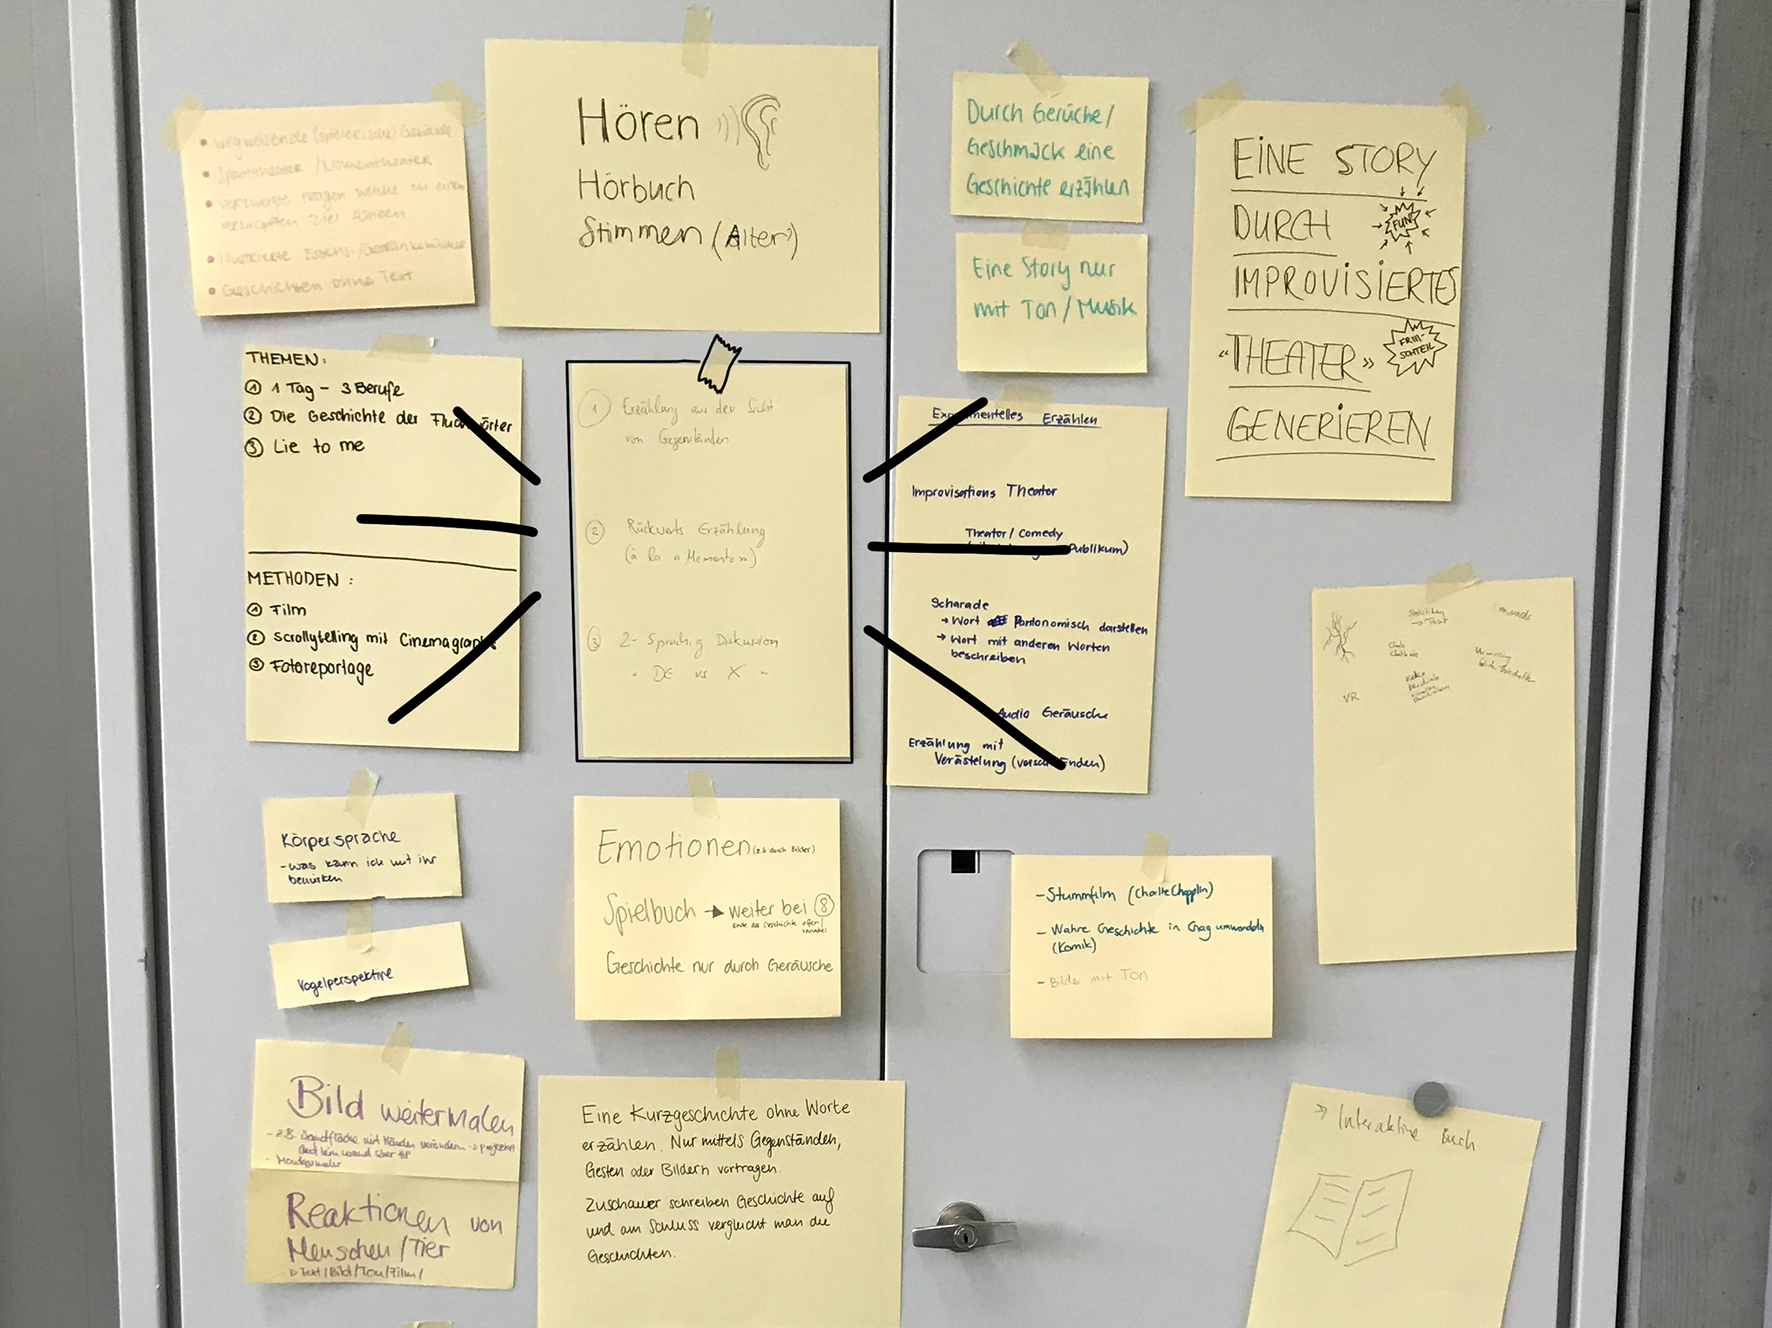 • wegweisende (spielerische) Gebäude
• /Momenttheater
• verzweigte Fragen welche zu einem
verknüpften Ziel führen
• illustrierte Essens-/
• Geschichten ohne Text
Hören
Hörbuch
Stimmen (Alter)
Durch Gerüche/
Geschmack eine
Geschichte erzählen
Eine Story nur
mit Ton / Musik
EINE STORY
DURCH
FUN
IMPROVISIERTES
«THEATER»
GENERIEREN
THEMEN:
① 1 Tag - 3 Berufe
② Die Geschichte der
③ Lie to me
METHODEN:
① Film
② Scrollytelling mit Cinemagraphs
③ Fotoreportage
① Erzählung aus der Sicht
von Gegenständen
② Rückwerts Erzählung
(à la «Memento»)
③ 2-Sprachig Diskussion
" DE vs X "
Experimentelles Erzählen
Improvisations Theater
Theater / Comedy
Publikum)
Scharade
→ Wort Pantonomisch darstellen
→ Wort mit anderen Worten
beschreiben
Audio Geräusche
Erzählung mit
Verästelung (versch. Enden)
→ Text
VR
Körpersprache
- was kann ich mit ihr
bewirken
Vogelperspektive
Emotionen (z.b durch Bilder)
Spielbuch → weiter bei ⑧
Ende der Geschichte offen/
variabel
Geschichte nur durch Geräusche
- Stummfilm (Charlie Chapplin)
- Wahre Geschichte in Gag umwandeln
(Komik)
- Bilder mit Ton
Bild weitermalen
- z.B. Sandfläche mit Händen verändern → projiziert
auf Leinwand über HP
Reaktionen von
Menschen / Tier
Text / Bild / Ton / Film /
Eine Kurzgeschichte ohne Worte
erzählen. Nur mittels Gegenständen,
Gesten oder Bildern vortragen.
Zuschauer schreiben Geschichte auf
und am Schluss vergleicht man die
Geschichten.
→ Interaktive Buch